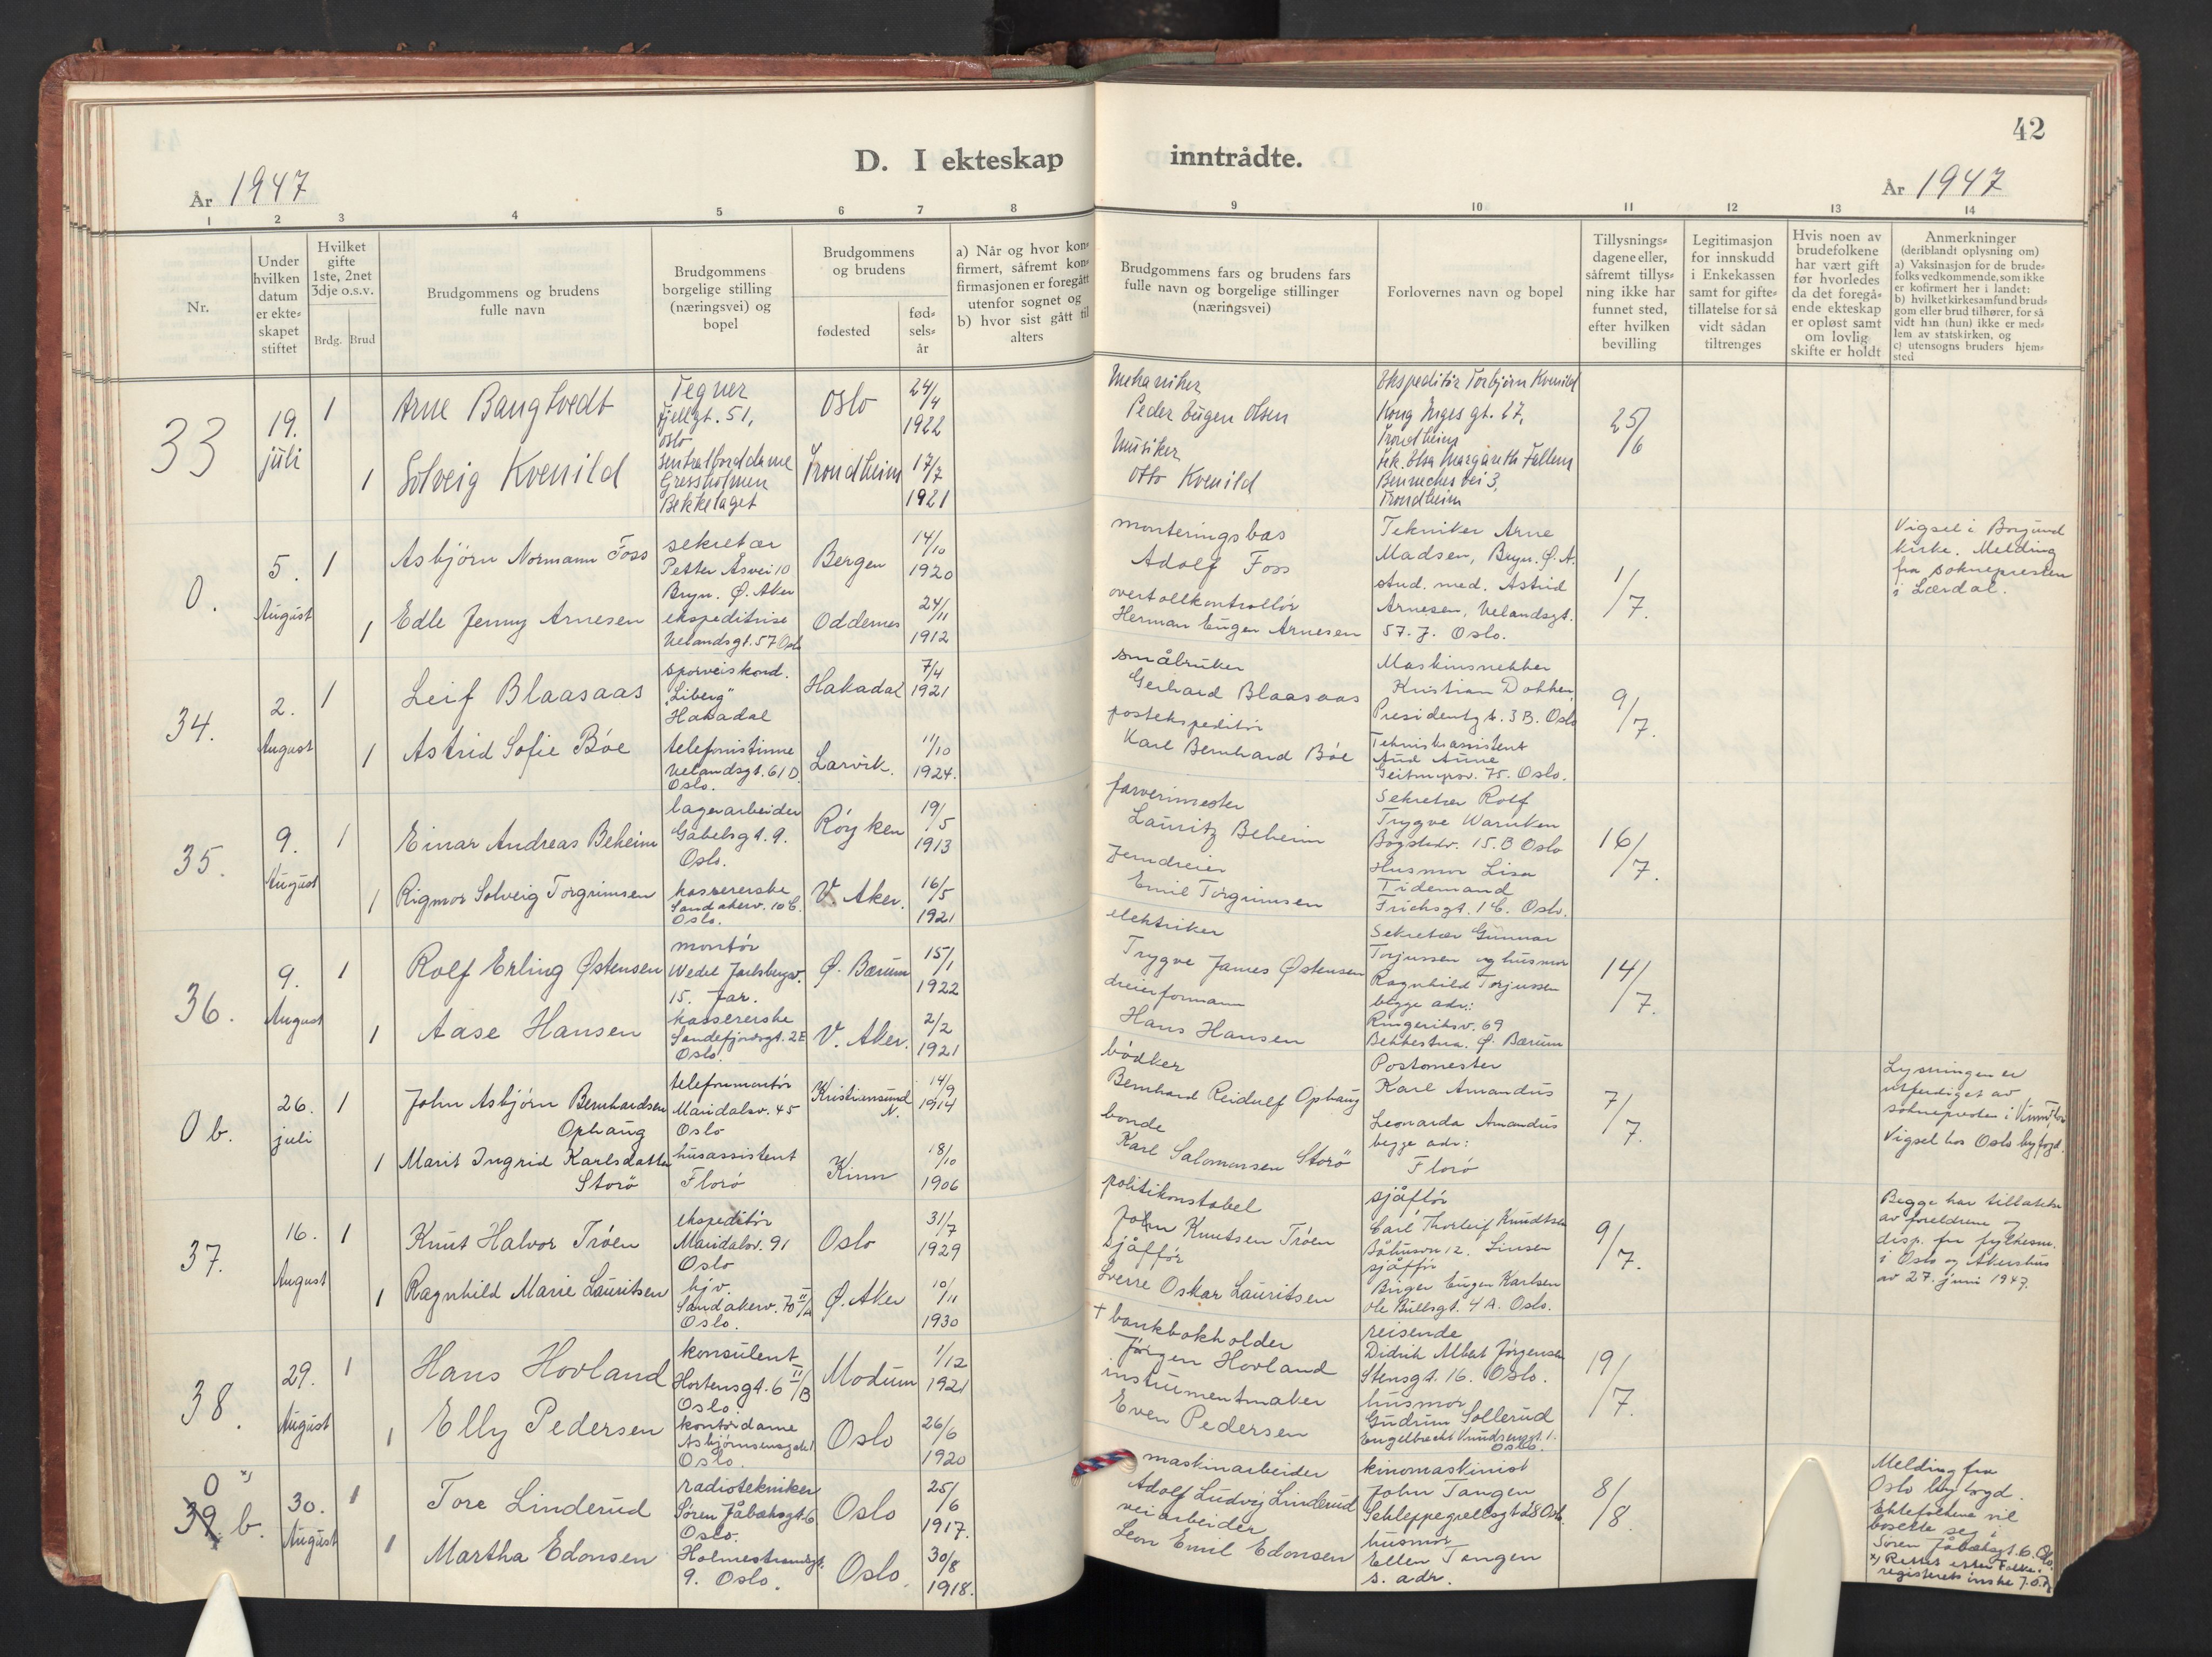 42
D. I ekteskap inntrådte.
År 1947
År 1947
1 2 3 4 5 6 7 8 9 10 11 12 13 14
Nr.
Under
hvilken
datum
er ekte-
skapet
stiftet
Hvilket
gifte
1ste, 2net
3dje o.s.v.
Brdg. Brud
Brudgommens og brudens
fulle navn
Brudgommens
borgelige stilling
(næringsvei) og
bopel
Brudgommens
og brudens
fødested
fød-
sels-
år
a) Når og hvor kon-
firmert, såfremt kon-
firmasjonen er foregått
utenfor sognet og
b) hvor sist gått til
alters
Brudgommens fars og brudens fars
fulle navn og borgelige stillinger
(næringsvei)
Forlovernes navn og bopel
Tillysnings-
dagene eller,
såfremt tillys-
ning ikke har
funnet sted,
efter hvilken
bevilling
Legitimasjon
for innskudd
i Enkekassen
samt for gifte-
tillatelse for så
vidt sådan
tiltrenges
Hvis noen av
brudefolkene
har vært gift
før hvorledes
da det foregå-
ende ekteskap
er opløst samt
om lovlig
skifte er holdt
Anmerkninger
(deriblandt oplysning om)
a) Vaksinasjon for de brude-
folks vedkommende, som ikke
er kofirmert her i landet:
b) hvilket kirkesamfund brud-
gom eller brud tilhører, for så
vidt han (hun) ikke er med-
lem av statskirken, og
c) utensogns bruders hjem-
sted
33
19.
juli
1
Arne Bangtvedt
Tegner
Fjellgt. 51,
Oslo
Oslo
24/4
1922
Mekaniker
Peder Eugen Olsen
Ekspeditør Torbjørn Kvenild
Kong Inges gt. 27,
Trondheim
25/6
1
Solveig Kvenild
Sentralborddame
Gressholmen
Bekkelaget
Trondheim
17/7
1921
Musiker
Otto Kvenild
frk. Elsa Margareth
3,
Trondheim
0.
5.
August
1
Asbjörn Normann Foss
sekretær
Petter Åsvei 10
Bryn. Ø. Aker
Bergen
14/10
1920
monteringsbas
Adolf Foss
Tekniker Arne
Madsen, Bryn. Ø. A.
1/7.
Vigsel i Borgund
kirke. Melding
fra soknepresten
i Lærdal.
1
Edle Jenny Arnesen
ekspeditrise
Uelandsgt. 57 Oslo
Oddernes
24/11
1912
overtollkontrollör
Herman Eugen Arnesen
stud. med. Astrid
Arnesen, Uelandsgt.
57. J. Oslo.
34.
2.
August
1
Leif Blaasaas
sporveiskond.
"Liberg"
Hakadal
Hakadal
7/4
1921
småbruker
Gerhard Blaasaas
Maskinsnekker
Kristian Dokken,
Presidentgt. 3 B. Oslo
9/7.
1
Astrid Sofie Böe
telefonistinne
Uelandsgt. 61 D.
Oslo.
Larvik.
11/10
1924.
postekspeditör
Karl Bernhard Böe
Teknisk assistent
Aud Aune
Geitmyrsv. 75. Oslo.
35.
9.
August
1
Einar Andreas Beheim
lagerarbeider
Gabelsgt. 9.
Oslo.
Röyken
19/5
1913
farverimester
Lauritz Beheim
Sekretær Rolf
Trygve Warnken
Bogstadv. 15. B Oslo
16/7.
1
Rigmor Solveig Torgrimsen
kassererske
Sandakerv. 10 C.
Oslo.
V. Aker.
16/5
1921
Jerndreier
Emil Torgrimsen
Husmor Lisa
Tidemand
Frichsgt. 1 C. Oslo.
36.
9.
August
1
Rolf Erling Østensen
montör
Wedel Jarlsbergsv.
15. Jar.
Ø. Bærum
15/1
1922
elektriker
Trygve James Østensen
Sekretær Gunnar
Torjussen og husmor
Ragnhild Torjussen
begge adr.:
Ringeriksv. 69
Bekkestua. Ø. Bærum
14/7.
1
Aase Hansen
kassererske
Sandefjordsgt. 2 E
Oslo.
V. Aker.
2/2
1921
dreierformann
Hans Hansen
0 b.
26.
juli
1
John Asbjörn Bernhardsen
Ophaug
telefonmontör
Maridalsv. 45
Oslo
Kristiansund
N.
14/9
1914
bödker
Bernhard Reidulf Ophaug
Postmester
Karl Amandus
7/7.
Lysningen er
utferdiget av
soknepresten i Kinn, Florö
Vigsel hos Oslo byfogd.
1
Marit Ingrid Karlsdatter
Storö
husassistent
Florö
Kinn
18/10
1906
bonde
Karl Salomonsen Storö
Leonarda Amandus
begge adr:
Florö
37.
16.
August
1
Knut Halvor Tröen
ekspeditör
Maridalsv. 91
Oslo
Oslo
31/7
1929
politikonstabel
John Knutsen Tröen
sjåför
Carl Thorleif Knudtsen
12.
9/7.
Begge har tillatelse
av foreldrene og
disp. fra fylkesm.
i Oslo og Akershus
av 27. juni 1947.
1
Ragnhild Marie Lauritsen
hjv.
Sandakerv. 70 II/A
Oslo.
Ø. Aker
10/11
1930
sjåfför
Sverre Oskar Lauritsen
sjåfför
Birger Eugen Karlsen
Ole Bullsgt. 4 A. Oslo.
38.
29.
August
1
Hans Hovland
konsulent
Hortensgt. 6 II/B
Oslo.
Modum
1/12
1921
+ bankbokholder
Jörgen Hovland
reisende
Didrik Albert Jörgensen
Stensgt. 16. Oslo.
19/7.
1
Elly Pedersen
kontordame
Asbjörnsensgate 1
Oslo.
Oslo
26/6
1920
instrumentmaker
Even Pedersen
husmor
Gudrun Sollerud
Engelbrecht Knudsensgt. 1.
Oslo.
0 x)
39. b.
30.
August
1
Tore Linderud
radiotekniker
Sören Jåbæksgt. 6
Oslo.
Oslo
25/6
1917.
maskinarbeider
Adolf Ludvig Linderud
kinomaskinist
John Tangen
Schleppegrellsgt 28 Oslo.
8/8.
Melding fra
Oslo byfogd.
Ektefolkene vil
bosette seg i
Sören Jåbæksgt. 6. Oslo.
x) Rettet etter Folke-
registerets önske J.O.
1
Martha Edonsen
Holmestrandgt.
9. Oslo.
Oslo.
30/8
1918.
veiarbeider
Leon Emil Edonsen
husmor
Ellen Tangen
s. adr.